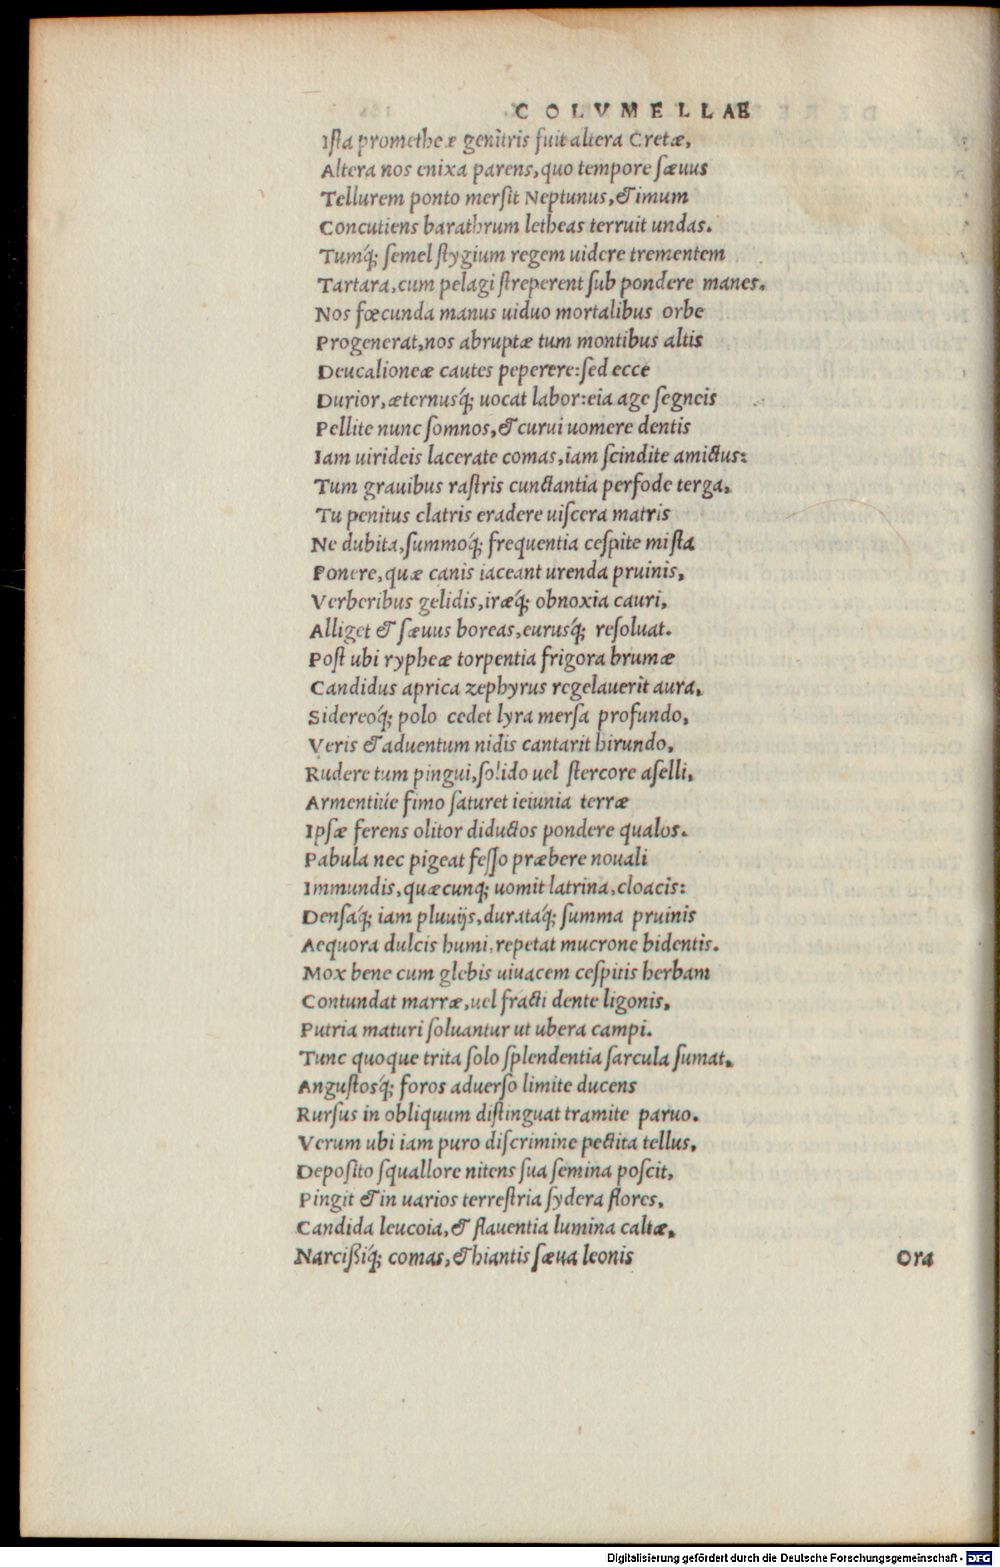 COLVMELLAE
Ista prometheæ genitris fuit altera Cretæ,
Altera nos enixa parens, quo tempore sæuus
Tellurem ponto mersit Neptunus, & imum
Concutiens barathrum letheas terruit undas.
Tumq́; semel stygium regem uidere trementem
Tartara, cum pelagi streperent sub pondere manes.
Nos fœcunda manus uiduo mortalibus orbe
Progenerat, nos abruptæ tum montibus altis
Deucalioneæ cautes peperere: sed ecce
Durior, æternusq́; uocat labor: eia age segneis
Pellite nunc somnos, & curui uomere dentis
Iam uirideis lacerate comas, iam scindite amictus:
Tum grauibus rastris cunctantia perfode terga,
Tu penitus clatris eradere uiscera matris
Ne dubita, summoq́; frequentia cespite mista
Ponere, quæ canis iaceant urenda pruinis,
Verberibus gelidis, iræq́; obnoxia cauri,
Alliget & sæuus boreas, eurusq́; resoluat.
Post ubi rypheæ torpentia frigora brumæ
Candidus aprica zephyrus regelauerit aura,
Sidereoq́; polo cedet lyra mersa profundo,
Veris & aduentum nidis cantarit hirundo,
Rudere tum pingui, solido uel stercore aselli,
Armentiúe fimo saturet ieiunia terræ
Ipsæ ferens olitor diductos pondere qualos.
Pabula nec pigeat fesso præbere nouali
Immundis, quæcunq; uomit latrina, cloacis:
Densaq́; iam pluuijs, durataq́; summa pruinis
Aequora dulcis humi, repetat mucrone bidentis.
Mox bene cum glebis uiuacem cespitis herbam
Contundat marræ, uel fracti dente ligonis,
Putria maturi soluantur ut ubera campi.
Tunc quoque trita solo splendentia sarcula sumat,
Angustosq́; foros aduerso limite ducens
Rursus in obliquum distinguat tramite paruo.
Verum ubi iam puro discrimine pectita tellus,
Deposito squallore nitens sua semina poscit,
Pingit & in uarios terrestria sydera flores,
Candida leucoia, & flauentia lumina caltæ,
Narcißiq́; comas, & hiantis sæua leonis
Ora
Digitalisierung gefördert durch die Deutsche Forschungsgemeinschaft - DFG